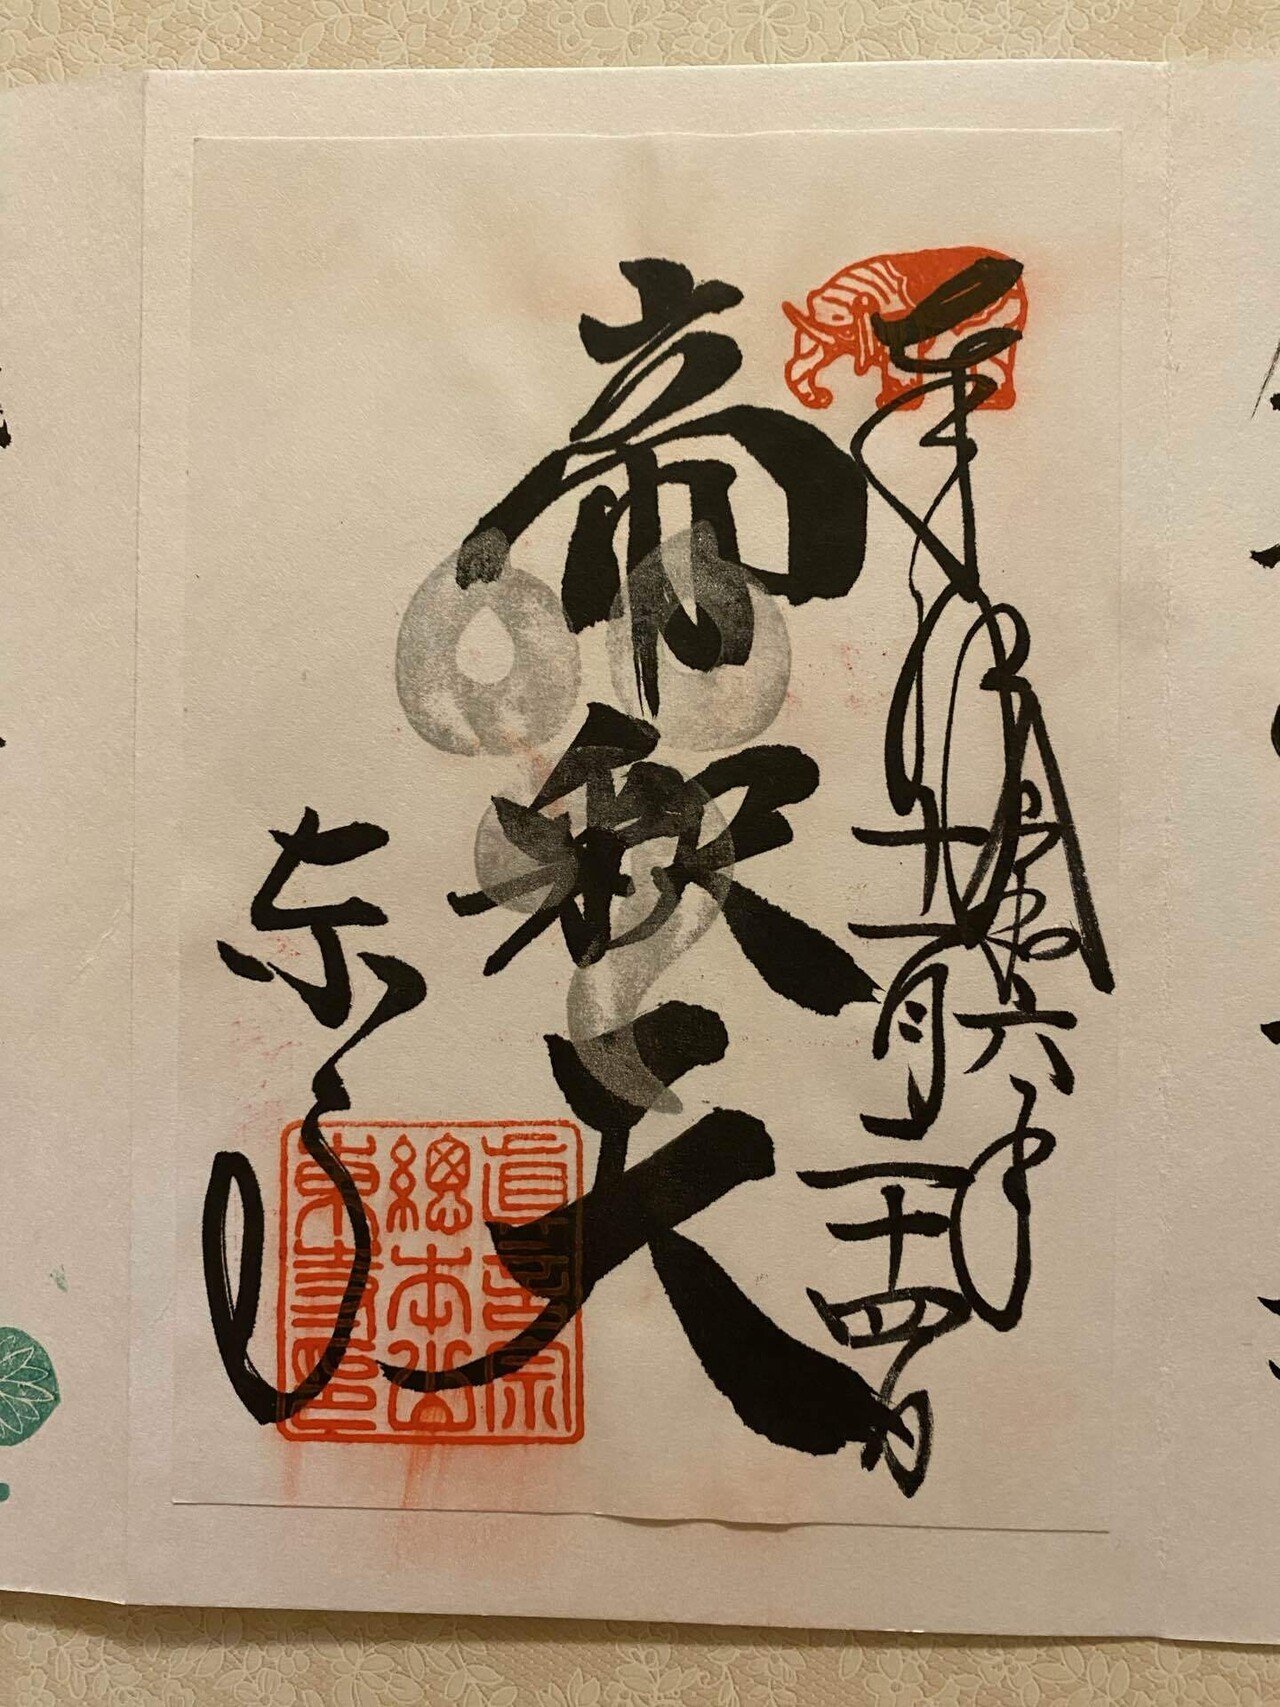 奉拝
令和六年
十一月二十四日
帝釈天
東寺
真言宗
總本山
東寺印